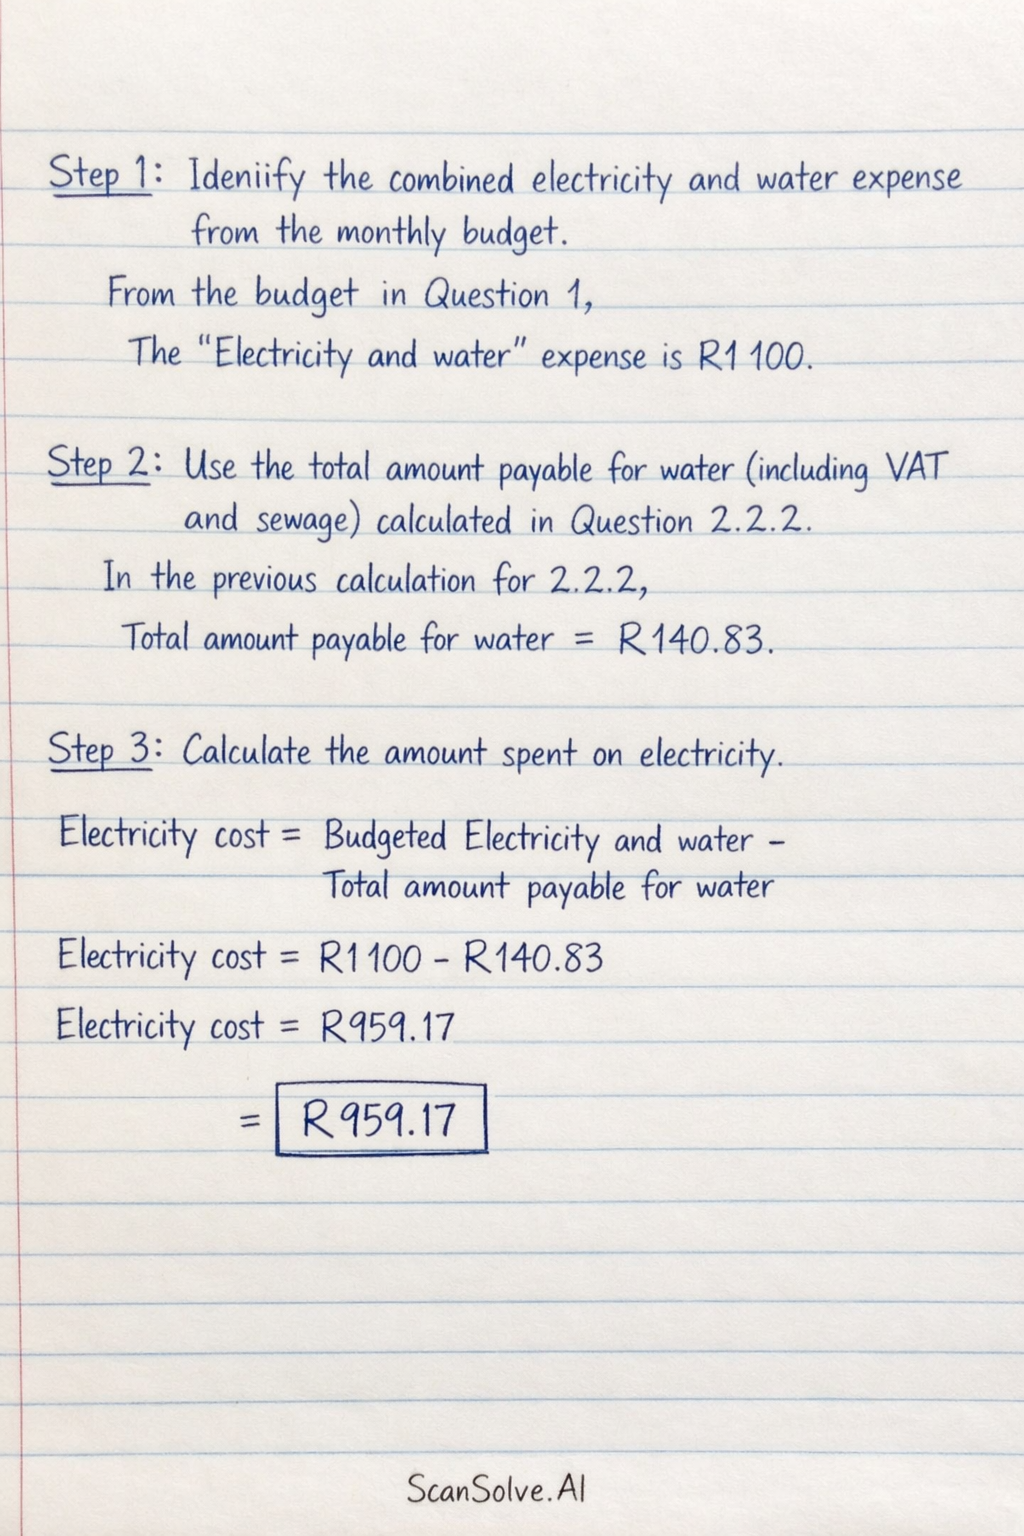 Step 1: Ideniify the combined electricity and water expense
from the monthly budget.
From the budget in Question 1,
The “Electricity and water” expense is R1 100.
Step 2: Use the total amount payable for water (including VAT
and sewage) calculated in Question 2.2.2.
In the previous calculation for 2.2.2,
Total amount payable for water = R140.83.
Step 3: Calculate the amount spent on electricity.
Electricity cost = Budgeted Electricity and water –
Total amount payable for water
Electricity cost = R1 100 – R140.83
Electricity cost = R959.17
= R959.17
ScanSolve.AI